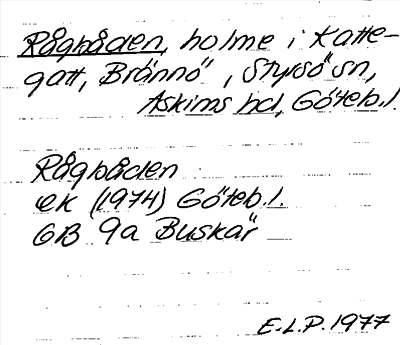 Rågbåden, holme i Katte-
gatt, Brännö, Styrsö sn,
Askims hd, Göteb.l.
Rågbåden
ek (1974) Göteb.l.
GB 9a Buskär
E.L.P. 1977